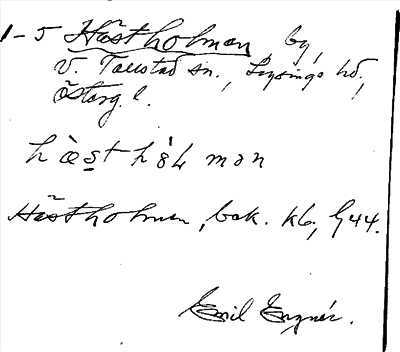 1-5 Hästholmen, by,
V. Tollstad sn., Lysings hd.,
Österg. l.
hæ̀st hɵ̀lmən
Hästholmen, bok. kb, G44.
Emil Engnér.